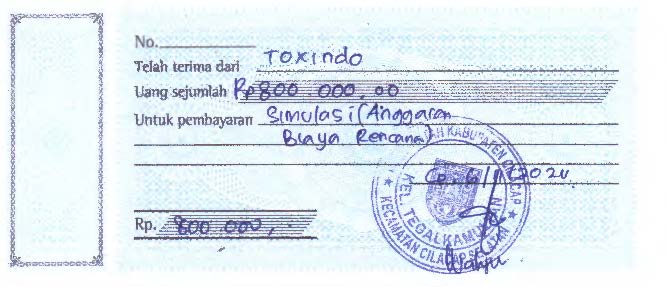 No.
Telah terima dari Toxindo
Uang sejumlah Rp800.000,00
Untuk pembayaran Simulasi (Anggaran
Biaya Rencana)
KABUPATEN CILACAP
KEL. TEGALKAMULYAN
KECAMATAN CILACAP SELATAN
Rp. 800.000,-
Wahyu